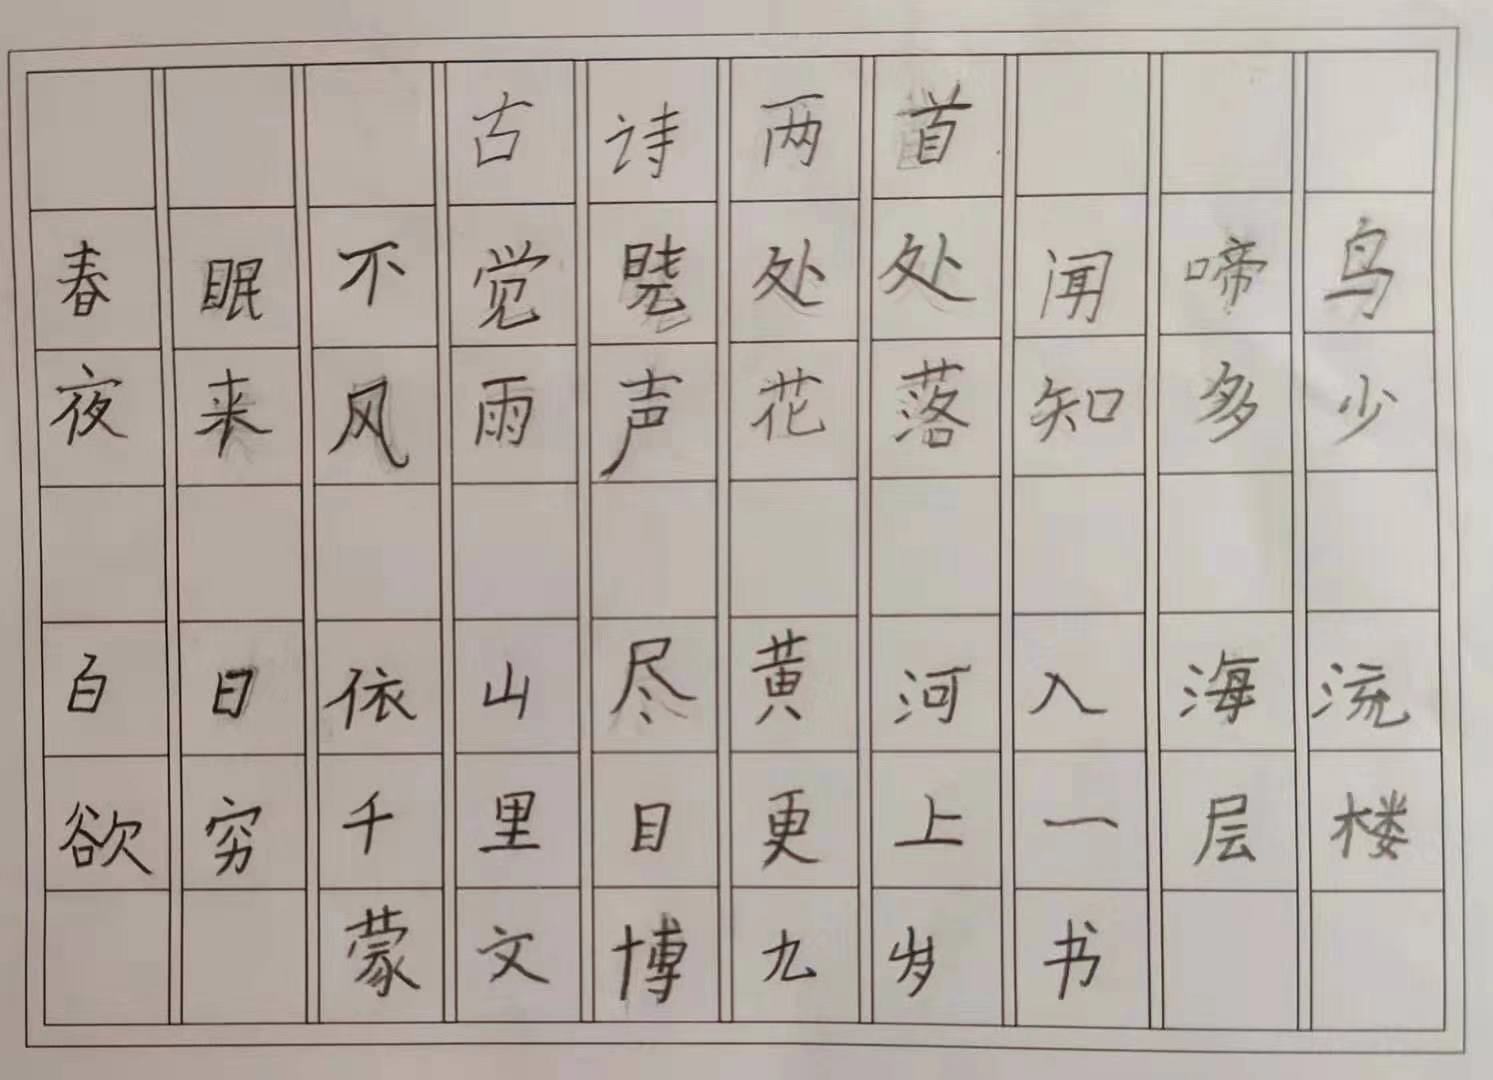 古诗两首
春眠不觉晓处处闻啼鸟
夜来风雨声花落知多少
白日依山尽黄河入海流
欲穷千里目更上一层楼
蒙文博九岁书